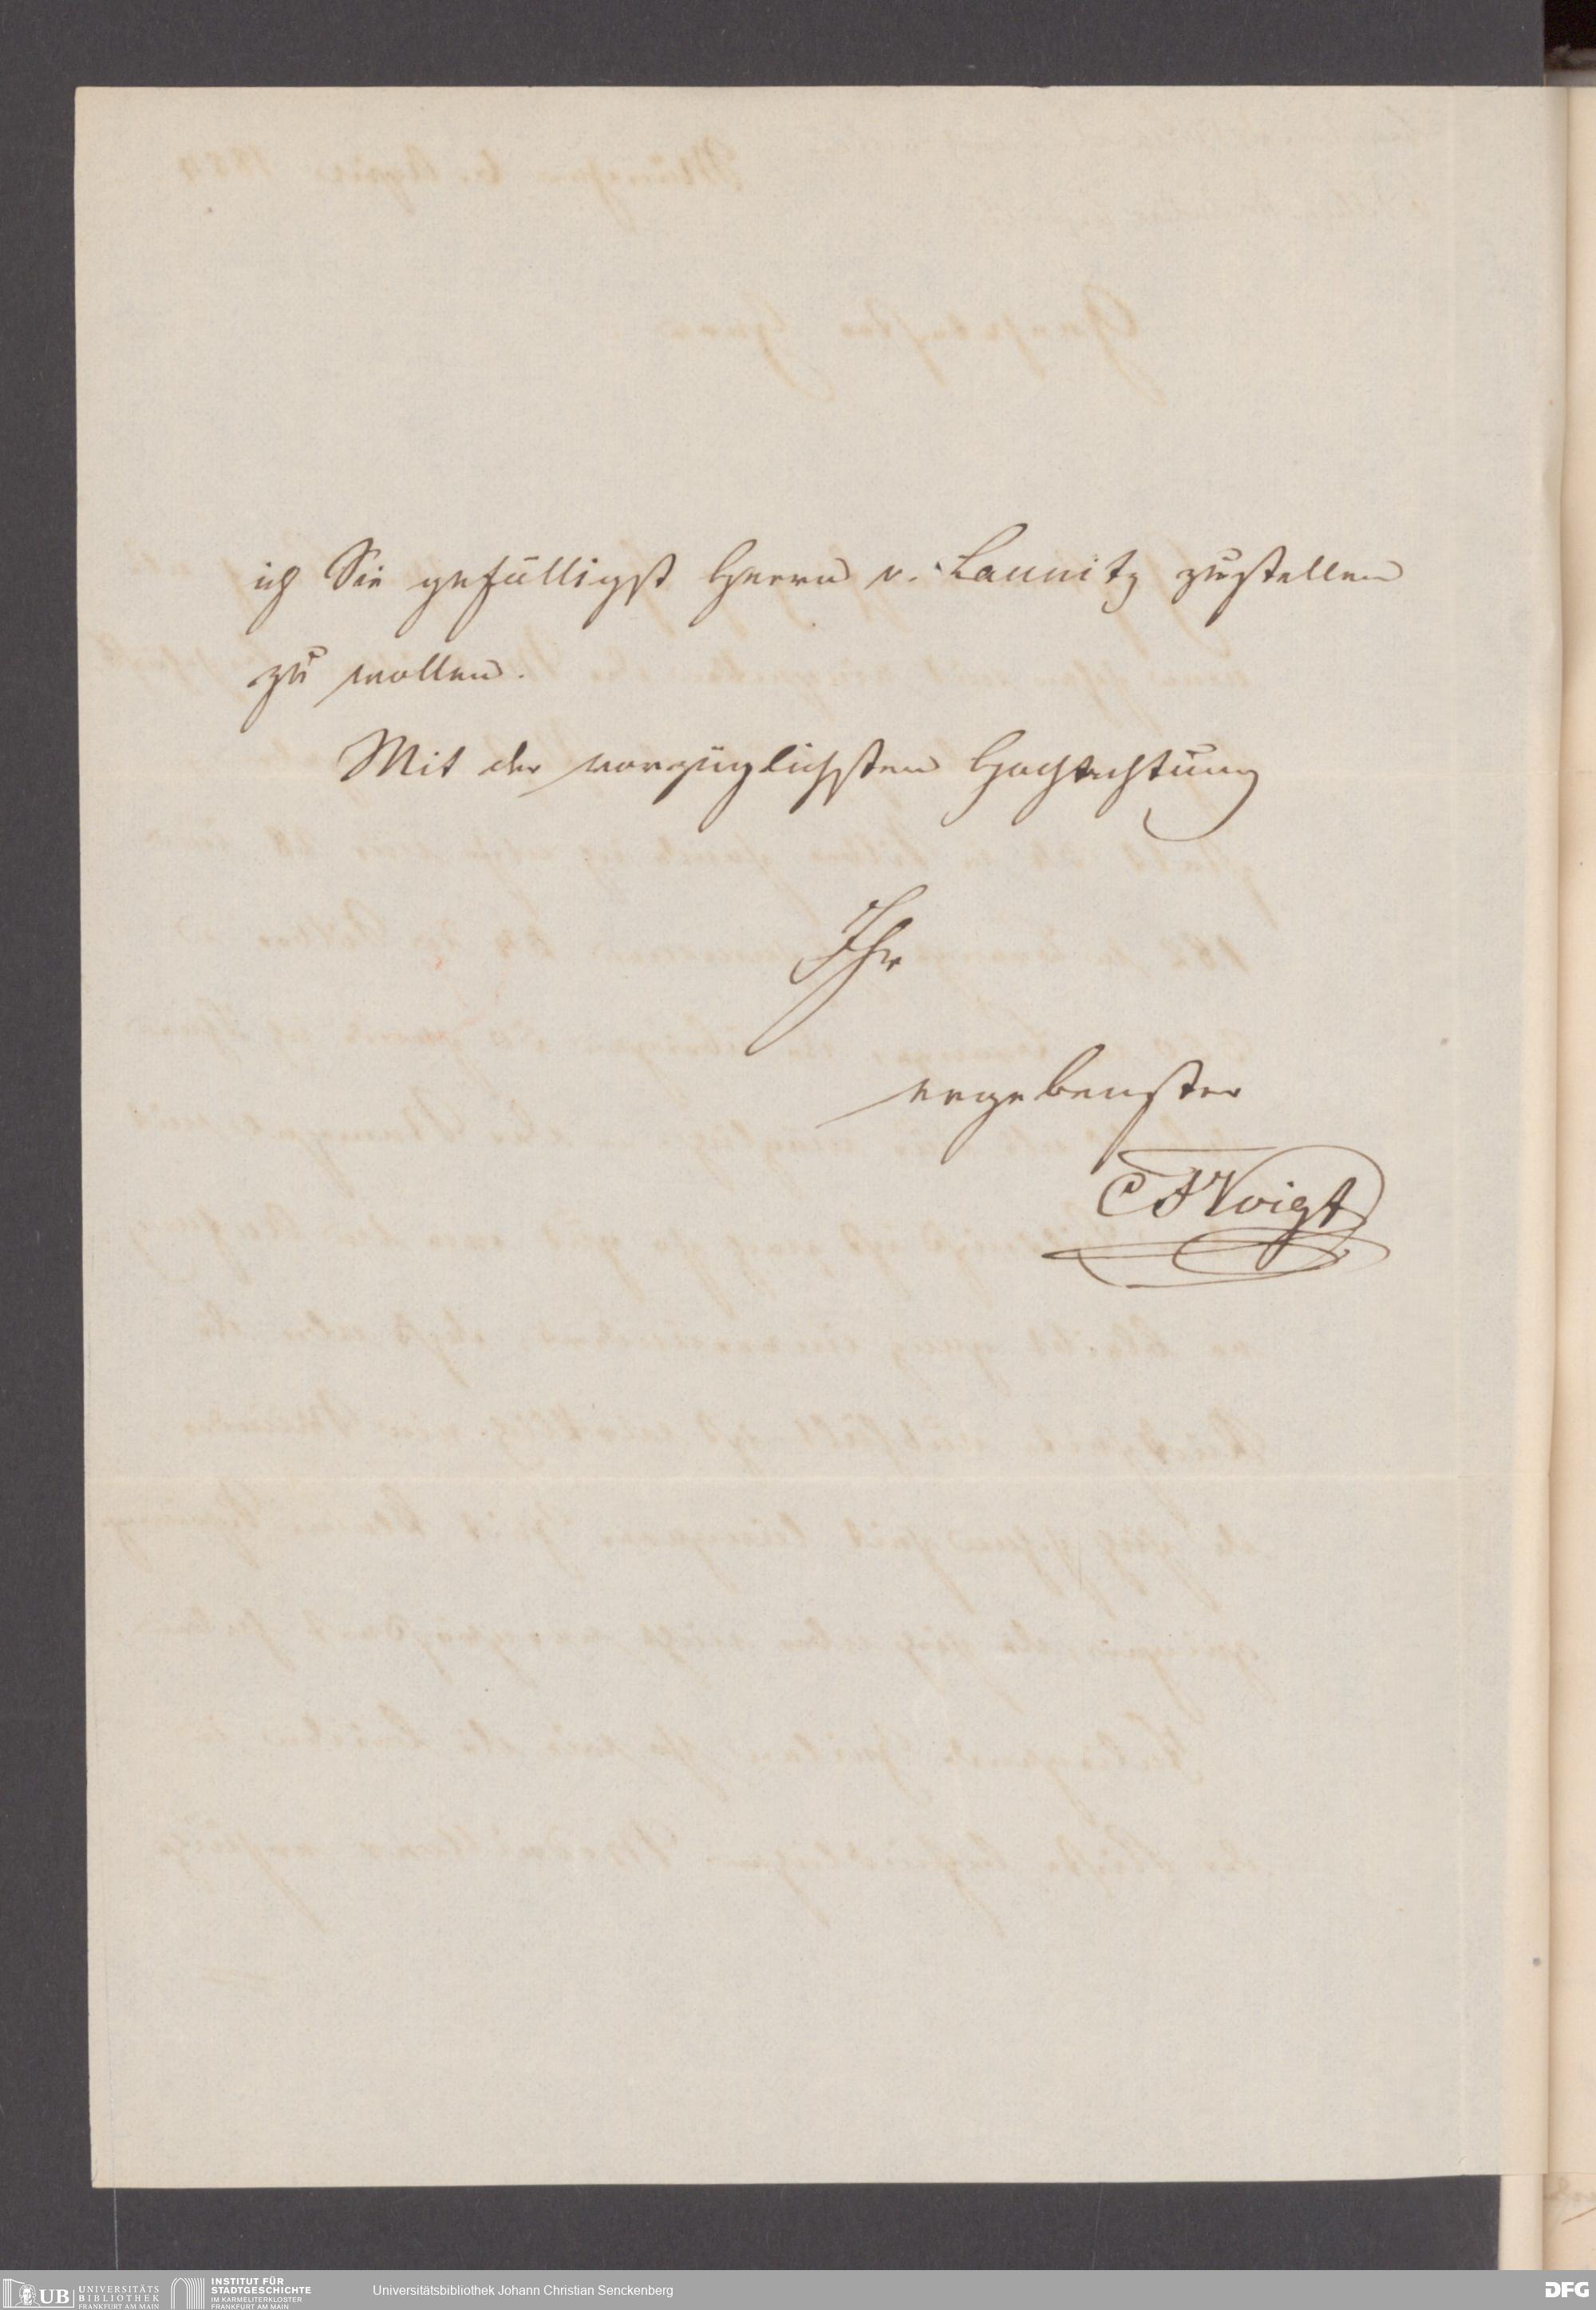 ich Sie gefälligst Herrn v. Launitz zustellen
zu wollen.
Mit der vorzüglichsten Hochachtung
Ihr
ergebenster
CFVoigt
UB UNIVERSITÄTS
BIBLIOTHEK
FRANKFURT AM MAIN
INSTITUT FÜR
STADTGESCHICHTE
IM KARMELITERKLOSTER
FRANKFURT AM MAIN
Universitätsbibliothek Johann Christian Senckenberg
DFG